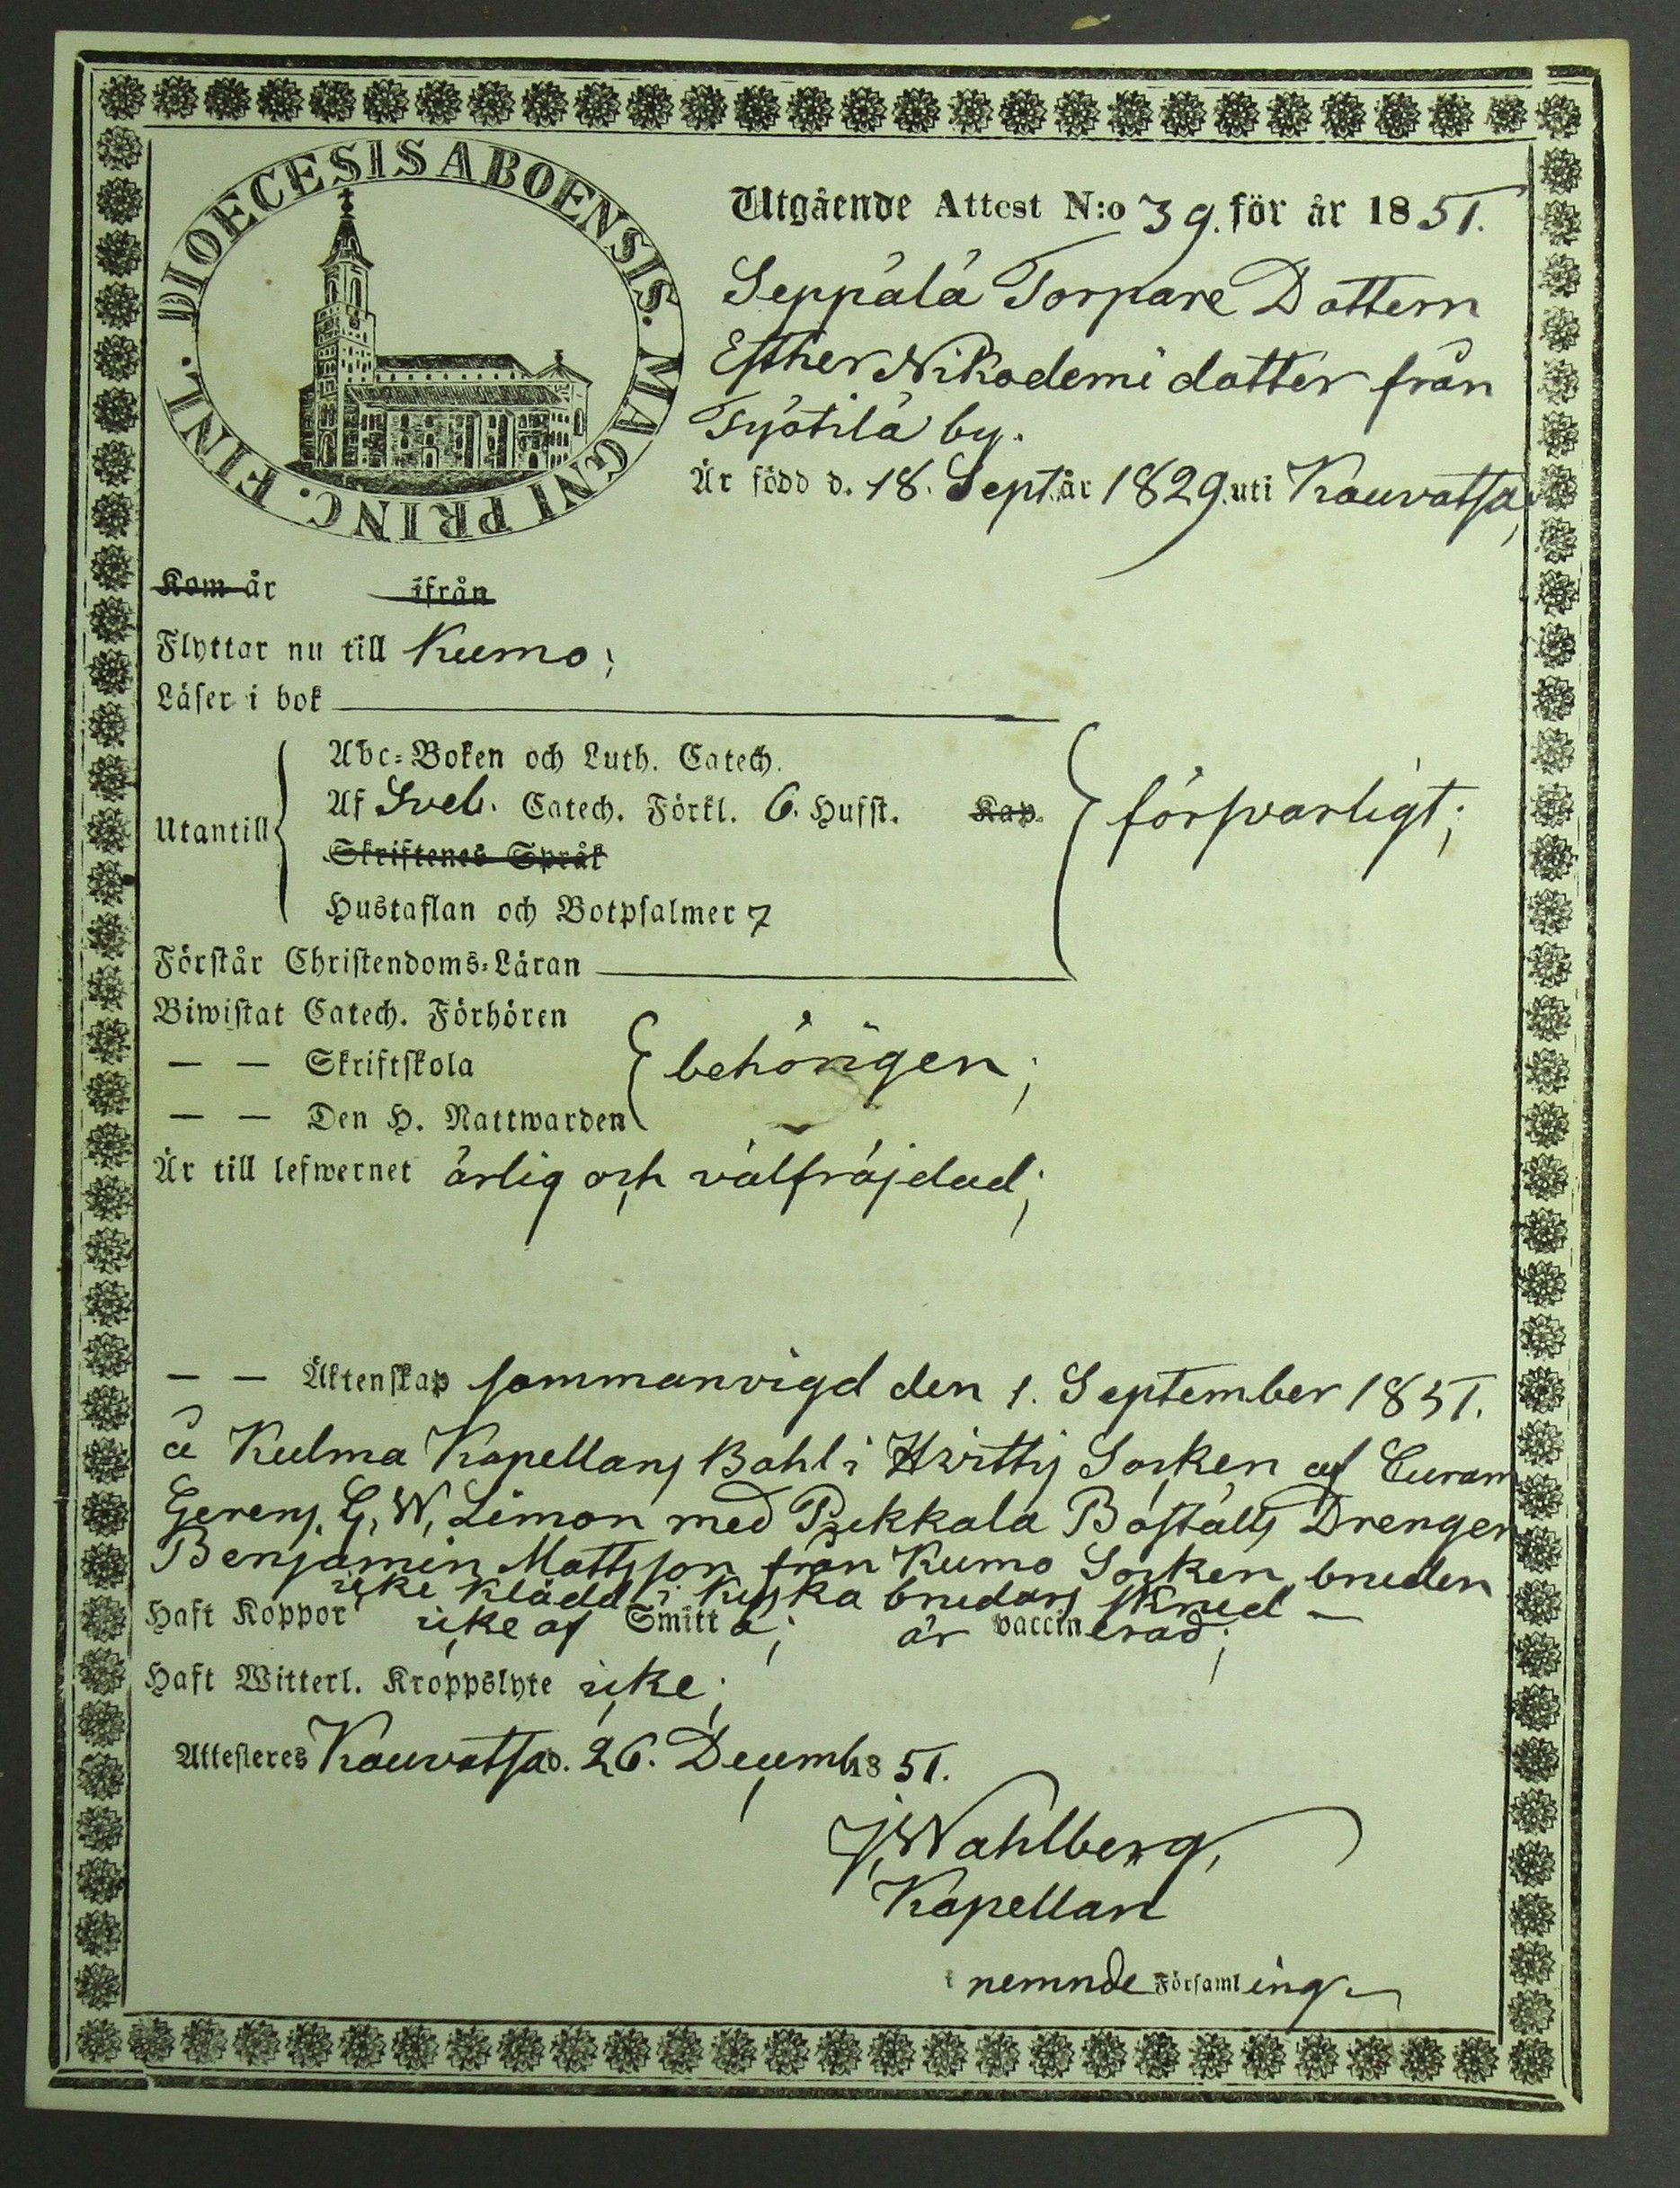 DIOECESIS ABOENSIS. MAGNI PRINC. FINL.
Utgående Attest N:o 39. för år 1851.
Seppälä Torpare Dottern
Esther Nikodemi dotter från
Työtilä by.
Är född d. 18. Sept. år 1829. uti Kauvatsa;
Kom år ifrån
Flyttar nu till Kumo;
Läser i bok
Abc-Boken och Luth. Catech.
Af Sveb. Catech. Förkl. 6. Hufst. Kap. försvarligt;
Utantill
Skriftenes Språk
Hustaflan och Botpsalmer 7
Förstår Christendoms-Läran
Biwistat Catech. Förhören
— — Skriftskola behörigen;
— — Den H. Nattwarden
Är till lefwernet ärlig och välfräjdad;
— — Äktenskap sammanvigd den 1. September 1851.
å Kulma Kapellans Bohl i Hvittis Socken af Curam
Gerens. G. W. Limon med Pukkala Boställs Drengen
Benjamin Mattsson från Kumo Socken, bruden
icke klädd i kyska brudars skrud —
Haft Koppor icke af Smitta; är vaccinerad;
Haft Witterl. Kroppslyte icke;
Attesteres Kauvatsa d. 26. Decemb. 1851.
J. Wahlberg,
Kapellan
i nemnde Församling